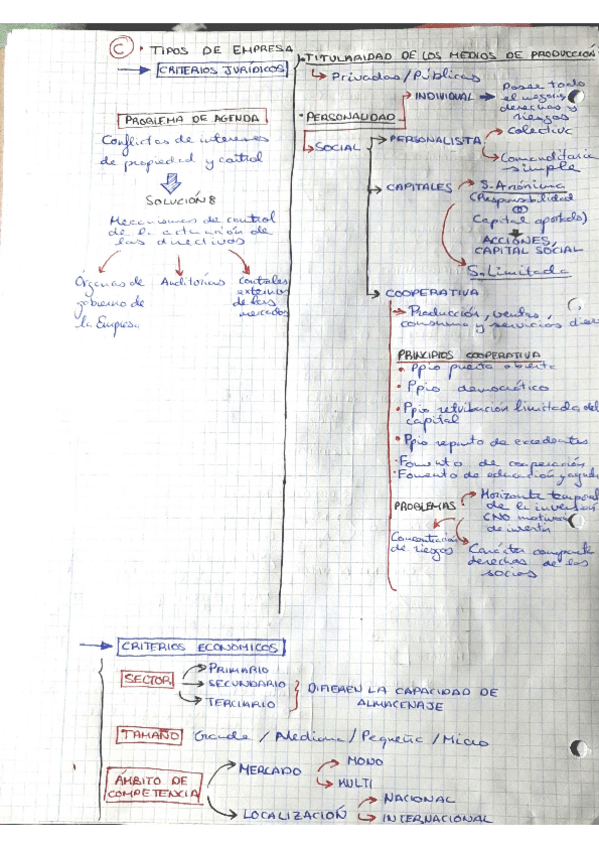 C • TIPOS DE EMPRESA
→ CRITERIOS JURÍDICOS
PROBLEMA DE AGENDA
Conflictos de intereses
de propiedad y control
SOLUCIÓN
Mecanismos de control
de la actuación de
las directivos
Órganos de
gobierno de
la Empresa
Auditorías
Controles
externos
de los
mercados
TITULARIDAD DE LOS MEDIOS DE PRODUCCIÓN
Privadas/Públicas
• PERSONALIDAD
INDIVIDUAL →
Posee todo
el negocio
derechos y
riesgos
SOCIAL
→ PERSONALISTA
Colectiva
Comanditaria
simple
→ CAPITALES
S. Anónima
(Responsabilidad
Capital aportado)
ACCIONES,
CAPITAL SOCIAL
S. Limitada
→ COOPERATIVA
Producción, ventas,
consumo y servicios
PRINCIPIOS COOPERATIVA
• Ppio puerta abierta
• Ppio democrático
• Ppio retribución limitada del
capital
• Ppio reparto de excedentes
• Fomento de cooperación
• Fomento de educación y
PROBLEMAS
Horizonte temporal
de la inversión
(NO
de
Concentración
de riesgos
Carácter
derechos de los
socios
→ CRITERIOS ECONÓMICOS
SECTOR
PRIMARIO
SECUNDARIO
TERCIARIO
DIFIEREN LA CAPACIDAD DE
ALMACENAJE
TAMAÑO Grande / Mediana / Pequeña / Micro
ÁMBITO DE
COMPETENCIA
MERCADO
MONO
MULTI
LOCALIZACIÓN
NACIONAL
INTERNACIONAL